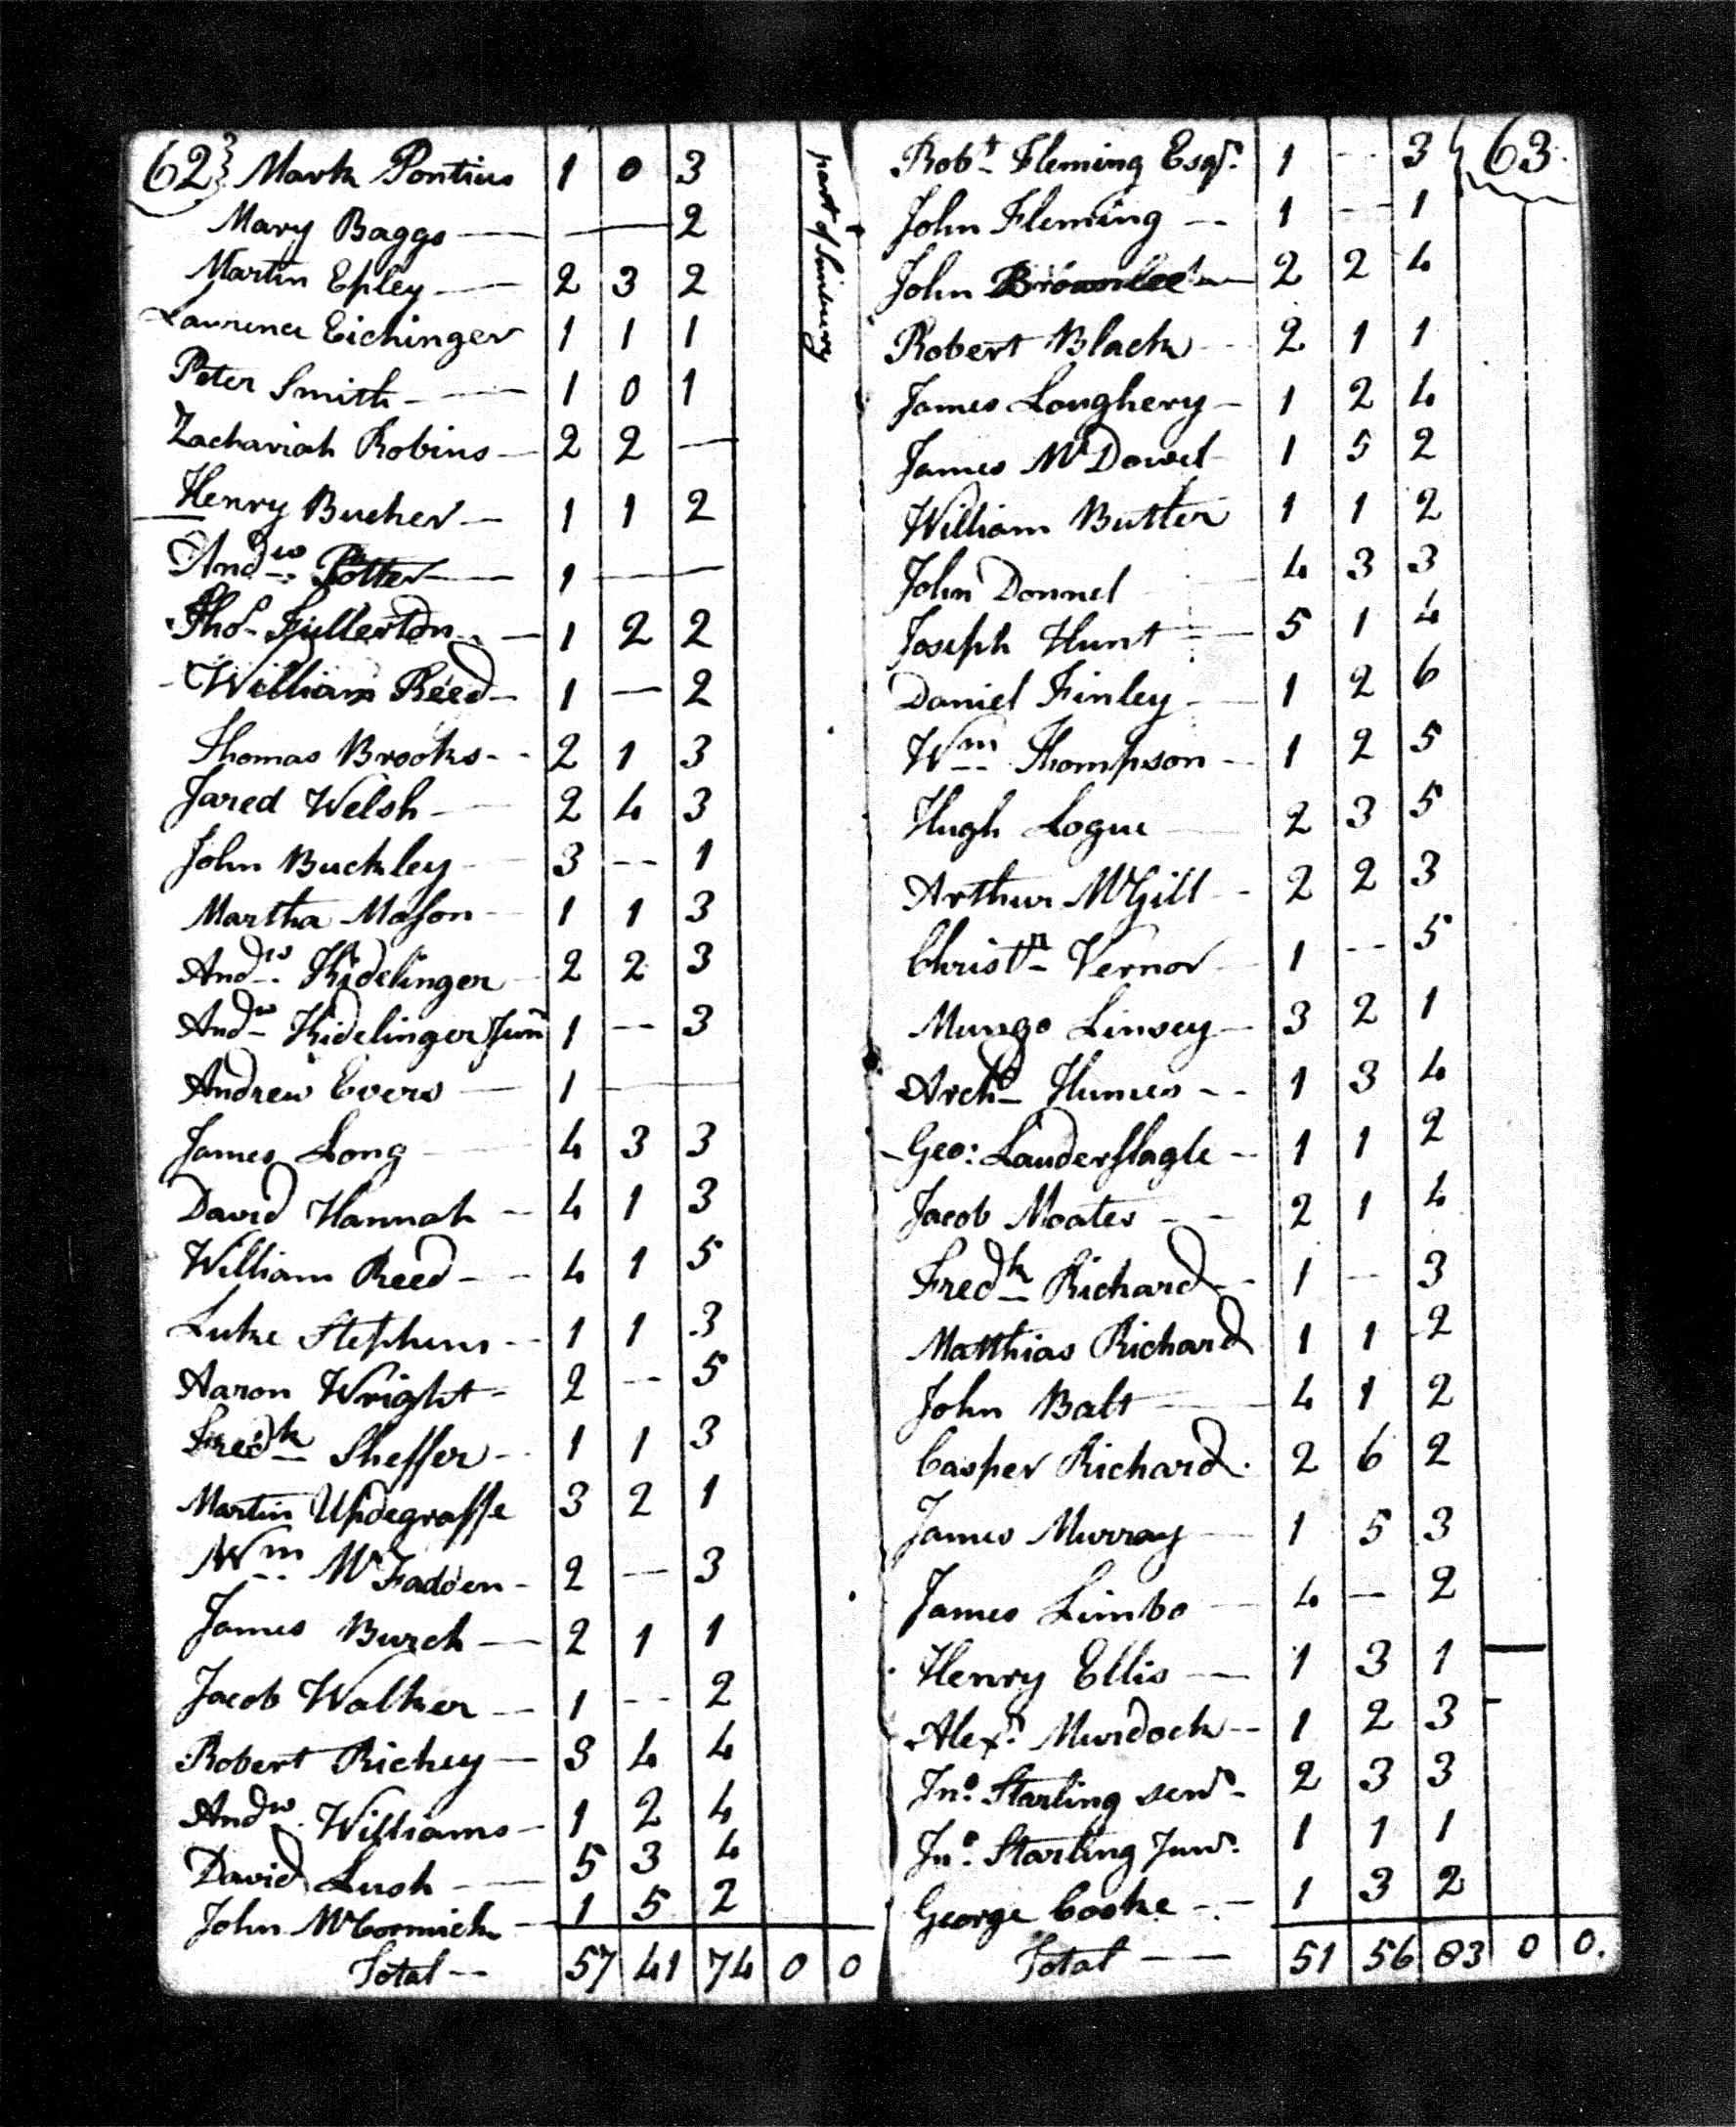 62} Mark Pontius 1 0 3
Mary Baggs — — 2
Martin Epley — 2 3 2
Laurence Eichinger 1 1 1
Peter Smith — 1 0 1
Zachariah Robins — 2 2 —
Henry Bucher — 1 1 2
Andw. Potter — 1 —
Thos. Fullerton — 1 2 2
William Reed — 1 — 2
Thomas Brooks - - 2 1 3
Jared Welsh — 2 4 3
John Buckley — 3 -- 1
Martha Mason — 1 1 3
Andw. Kidelinger — 2 2 3
Andw. Kidelinger Junr 1 -- 3
Andrew Evers — 1 —
James Long — 4 3 3
David Hannah -- 4 1 3
William Reed - - 4 1 5
Luke Stephens -- 1 1 3
Aaron Wright - 2 -- 5
Fredk Sheffer - 1 1 3
Martin Updegraffe 3 2 1
Wm McFadden - 2 — 3
James Burch — 2 1 1
Jacob Walker — 1 -- 2
Robert Richey — 3 4 4
Andw. Williams - 1 2 4
David Lush — 5 3 4
John McCormick - 1 5 2
Total -- 57 41 74 0 0
part of Sunbury
Robt Fleming Esqr. 1 -- 3 } 63.
John Fleming -- 1 -- 1
John Brownlee — 2 2 4
Robert Black — 2 1 1
James Loughery - 1 2 4
James McDowel - 1 5 2
William Butler 1 1 2
John Donnel 4 3 3
Joseph Hunt — 5 1 4
Daniel Finley — 1 2 6
Wm Thompson -- 1 2 5
Hugh Logue — 2 3 5
Arthur McGill -- 2 2 3
Christn Vernor — 1 -- 5
Mungo Linsey — 3 2 1
Archd Humes -- 1 3 4
Geo: Lauderslagle - 1 1 2
Jacob Moates - - 2 1 4
Fredk Richard -- 1 -- 3
Matthias Richard 1 1 2
John Balt — 4 1 2
Casper Richard. 2 6 2
James Murray — 1 5 3
James Limbo — 4 — 2
Henry Ellis — 1 3 1 —
Alexr. Murdoch -- 1 2 3 -
Jno. Starling senr. - 2 3 3
Jno. Starling Junr. 1 1 1
George Cooke -- 1 3 2
Total — 51 56 83 0 0.